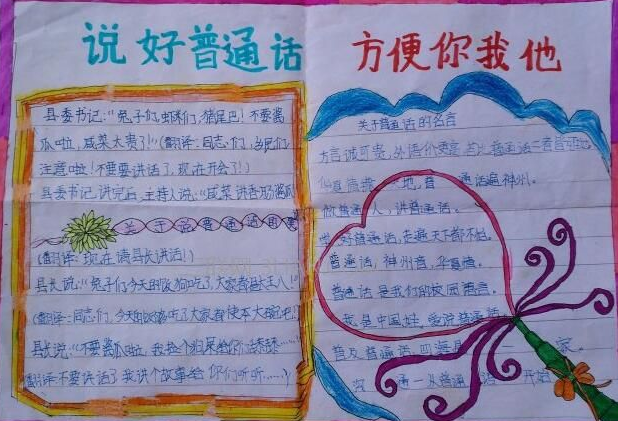 说好普通话 方便你我他
县委书记:“兔子们,虾米们,猪尾巴!不要酱
瓜啦,咸菜太贵了!”(翻译:同志们,乡民们
注意啦!不要讲话了,现在开会了!)
县委书记讲完后,主持人说:“咸菜请香肠酱瓜
关于说普通话用
(翻译:现在请县长讲话!)
县长说:“兔子们,今天的饭狗吃了,大家都是大王八!
(翻译:同志们,今天的饭够吃了,大家都使大碗吧!
县长说:“不要酱瓜啦,我捡个狗屎给你们舔舔……
(翻译不要讲话了,我讲个故事给你们听听……)
关于普通话的名言
方言诚可贵,外语价更高,若比普通话二者皆
地,普 通话遍神州。
做普通人,讲普通话。
好普通话,走遍天下都不怕。
普通话,神州音,华夏情。
普通话是我们的校园语言。
我是中国娃,爱说普通话
普及普通话,四海是 家。
通一从普通 话 开始